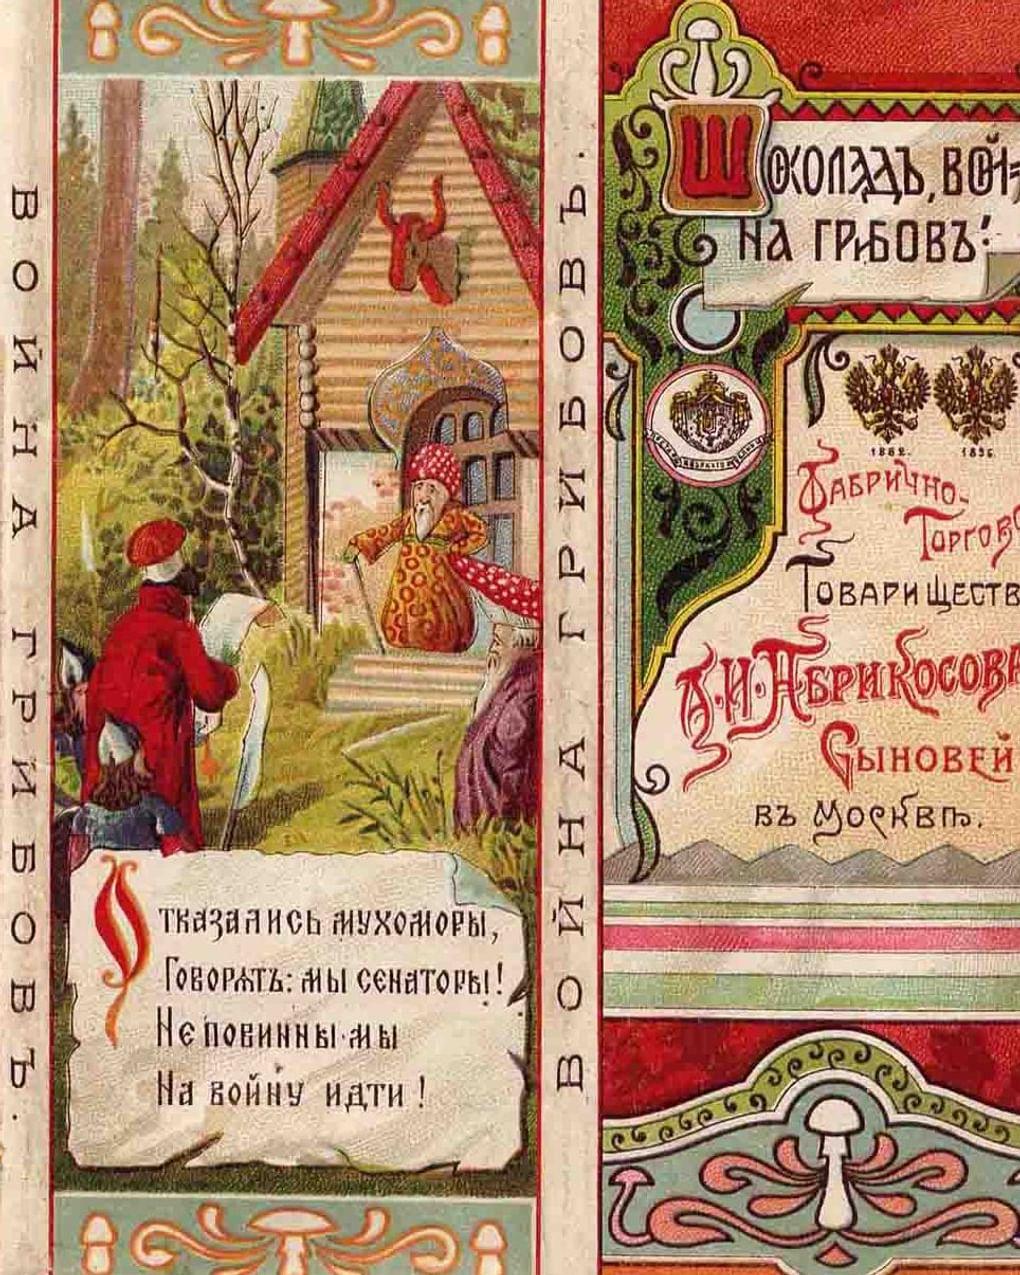 ВОЙНА ГРИБОВЪ.
Отказались мухоморы,
Говорятъ: мы сенаторы!
Не повинны мы
На войну идти!
ВОЙНА ГРИБОВЪ.
Шоколадъ, вой-
на грибовъ:
1882. 1896
Фабрично-
Торгово
Товариществ
А.И. Абрикосова
Сыновей
въ Москвѣ.